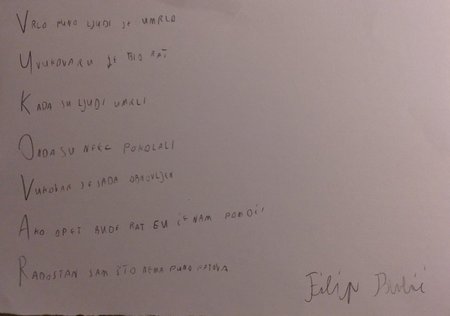 VRLO PUNO LJUDI JE UMRLO
U VUKOVARU JE BIO RAT
KADA SU LJUDI UMRLI
ONDA SU POKOLALI
VUKOVAR JE SADA OBNOVLJEN
AKO OPET BUDE RAT EU ĆE NAM POMOĆI
RADOSTAN SAM ŠTO NEMA PUNO
Filip